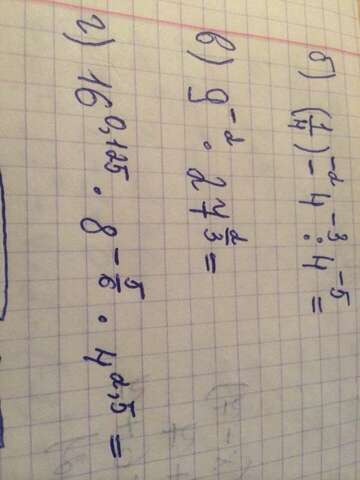 б) (1/4)^-2 - 4^-3 : 4^-5 =
в) 9^-2 · 27^(2/3) =
г) 16^0,125 · 8^(-5/6) · 4^2,5 =